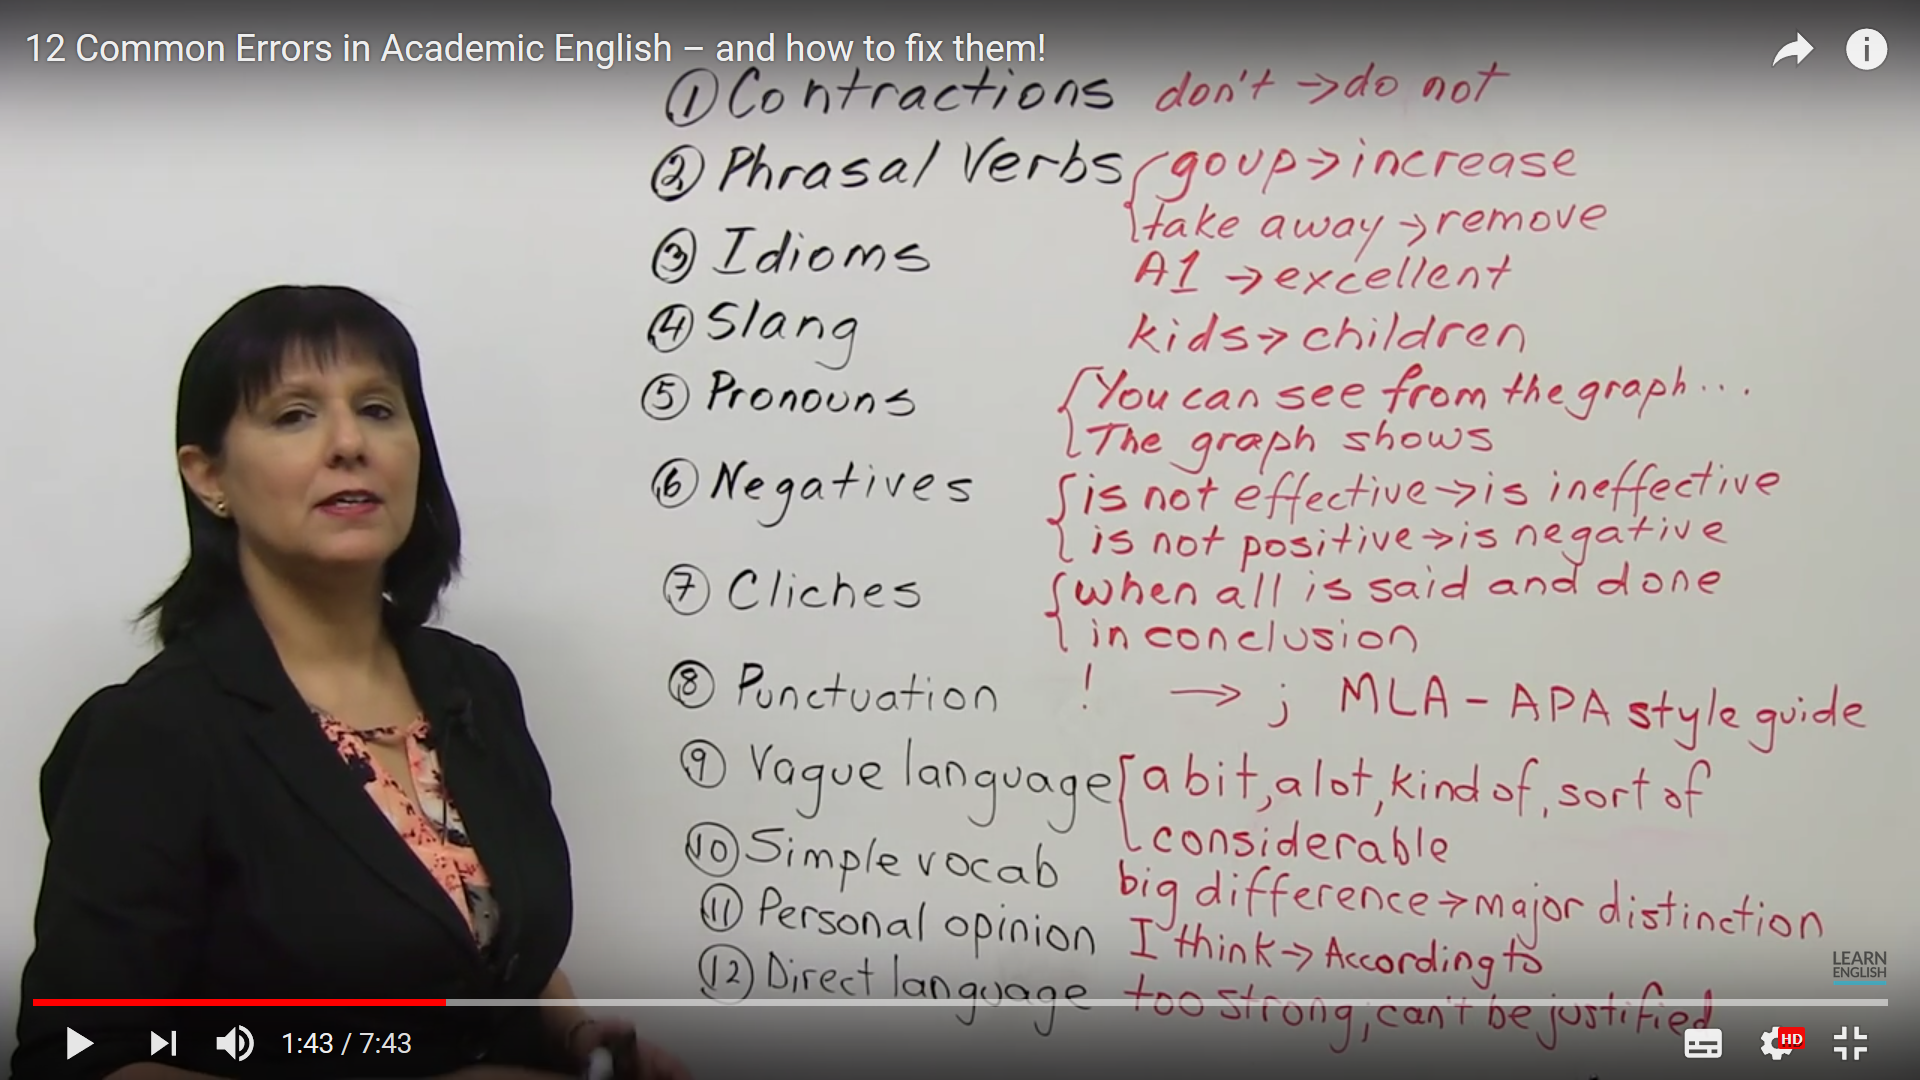 12 Common Errors in Academic English – and how to fix them!
① Contractions don't → do not
② Phrasal Verbs go up → increase
take away → remove
③ Idioms A1 → excellent
④ Slang kids → children
⑤ Pronouns You can see from the graph...
The graph shows
⑥ Negatives is not effective → is ineffective
is not positive → is negative
⑦ Cliches when all is said and done
in conclusion
⑧ Punctuation ! → ; MLA - APA style guide
⑨ Vague language a bit, a lot, kind of, sort of
considerable
⑩ Simple vocab big difference → major distinction
⑪ Personal opinion I think → According to
⑫ Direct language too strong, can't be justified
LEARN
ENGLISH
1:43 / 7:43
HD